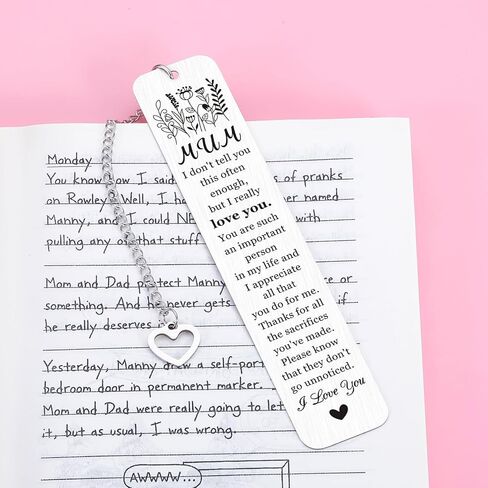 MUM
I don't tell you
this often
enough,
but I really
love you.
You are such
an important
person
in my life and
I appreciate
all that
you do for me.
Thanks for all
the sacrifices
you've made.
Please know
that they don't
go unnoticed.
I Love You
Monday
You know how I said of pranks
on Rowley? Well, I ha named
Manny, and I could NE with
pulling any of that stuff
Mom and Dad protect Manny ce or
something. And he never gets if
he really deserves
Yesterday, Manny drew a self-port
bedroom door in permanent marker.
Mom and Dad were really going to let
it, but as usual, I was wrong.
AWWWW...